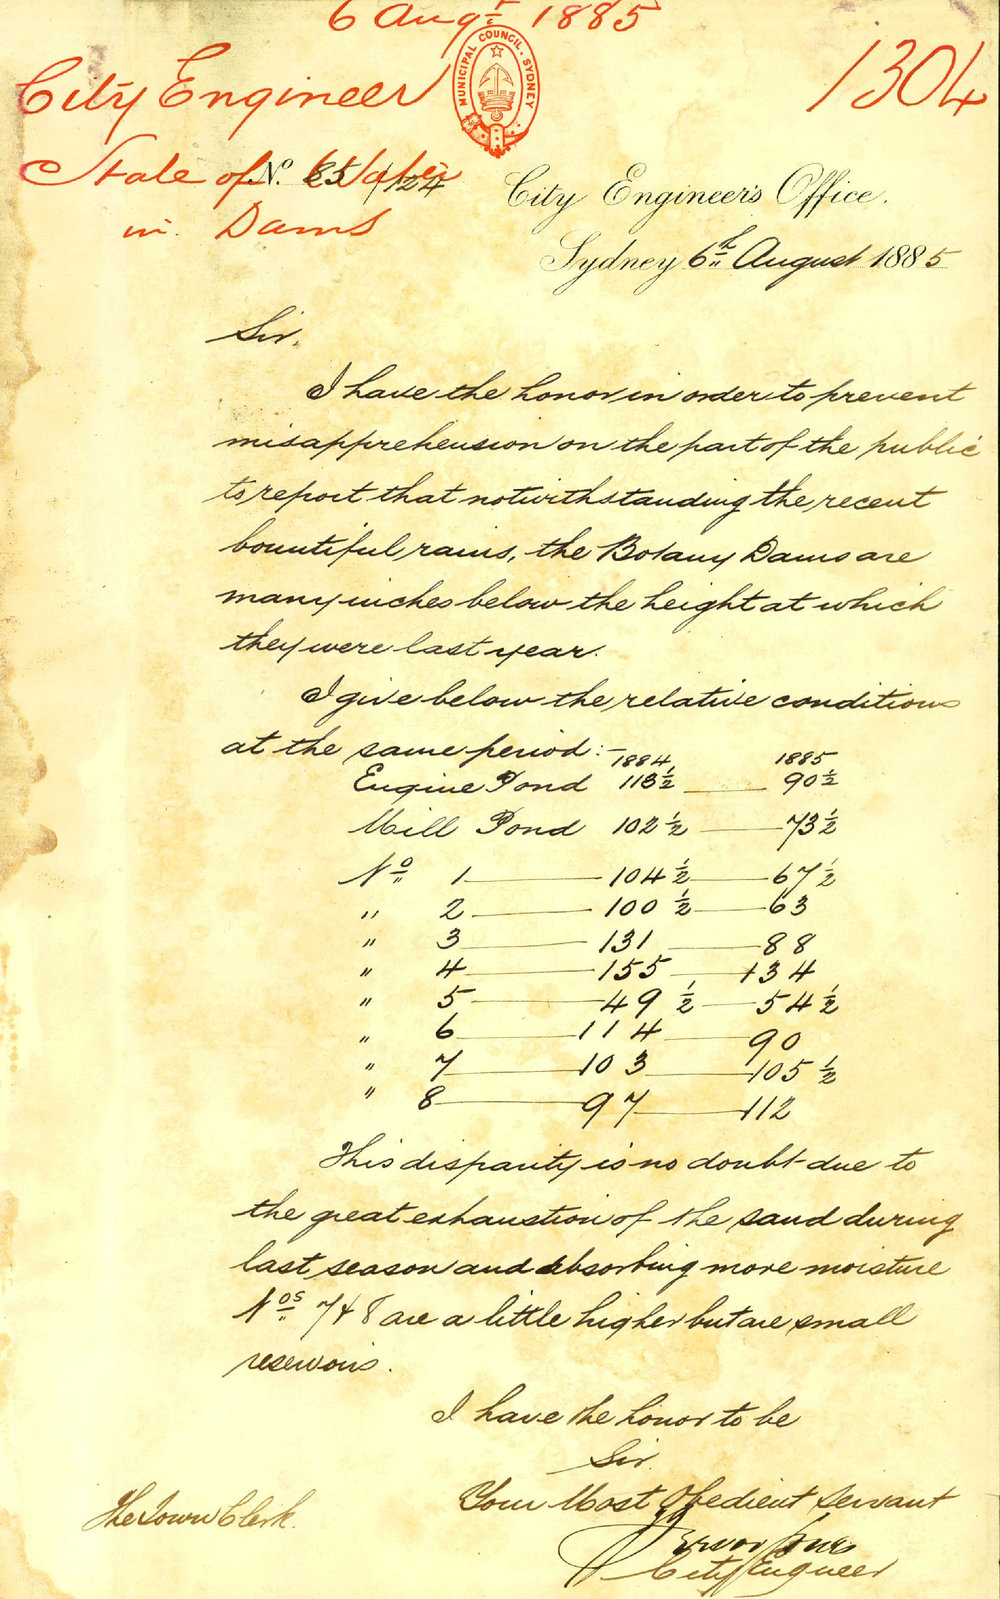 6 Augst 1885
City Engineer
1304
MUNICIPAL COUNCIL. SYDNEY
State of Water
in Dams
No. 85/124
City Engineer's Office.
Sydney 6th August 1885
Sir,
I have the honor in order to prevent
misapprehension on the part of the public
to report that notwithstanding the recent
bountiful rains, the Botany Dams are
many inches below the height at which
they were last year.
I give below the relative conditions
at the same period:- 1884 1885
Engine Pond 113½ 90½
Mill Pond 102½ 73½
No 1 104½ 67½
" 2 100½ 63
" 3 131 88
" 4 155 134
" 5 49½ 54½
" 6 114 90
" 7 103 105½
" 8 97 112
This disparity is no doubt due to
the great exhaustion of the sand during
last season and absorbing more moisture
Nos 7 & 8 are a little higher but are small
reservoirs.
I have the honor to be
Sir.
Your Most Obedient Servant
City Engineer
The Town Clerk.